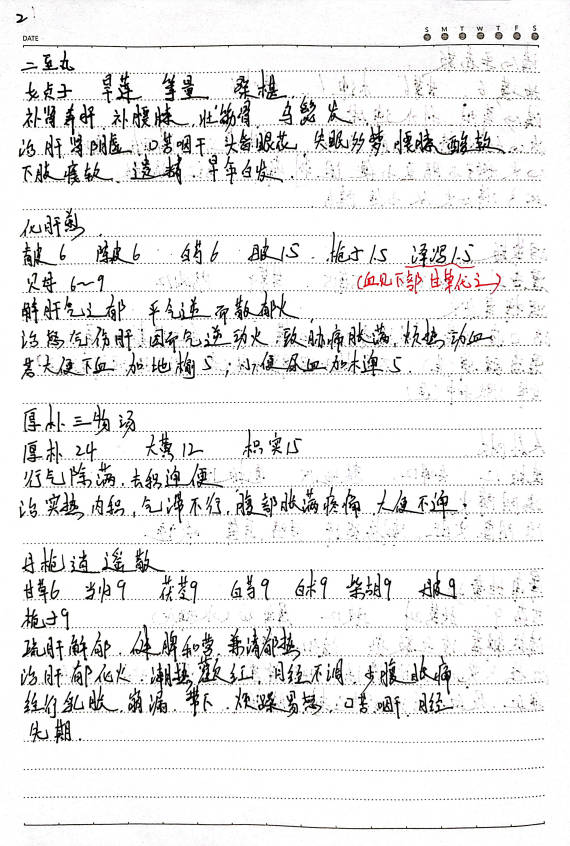 2
DATE
S M T W T F S
二至丸
女贞子 旱莲 等量 桑椹
补肾养肝 补腰膝 壮筋骨 乌髭发
治肝肾阴虚 口苦咽干 头昏眼花 失眠多梦 腰膝酸软
下肢痿软 遗精 早年白发
化肝煎
青皮6 陈皮6 白芍6 丹皮1.5 栀子1.5 泽泻1.5
贝母6~9 (血见下部 甘草代之)
解肝气之郁 平气逆而散郁火
治怒气伤肝 因而气逆动火 致胁痛胀满 烦热动血
若大便下血 加地榆5;小便尿血加木通5
厚朴三物汤
厚朴24 大黄12 枳实15
行气除满,去积通便
治实热内积,气滞不行,腹部胀满疼痛 大便不通.
丹栀逍遥散
甘草6 当归9 茯苓9 白芍9 白术9 柴胡9 丹皮9
栀子9
疏肝解郁.健脾和营.兼清郁热
治肝郁化火.潮热颧红.月经不调.少腹胀痛
经行乳胀.崩漏.带下.烦躁易怒.口苦咽干.月经
先期.